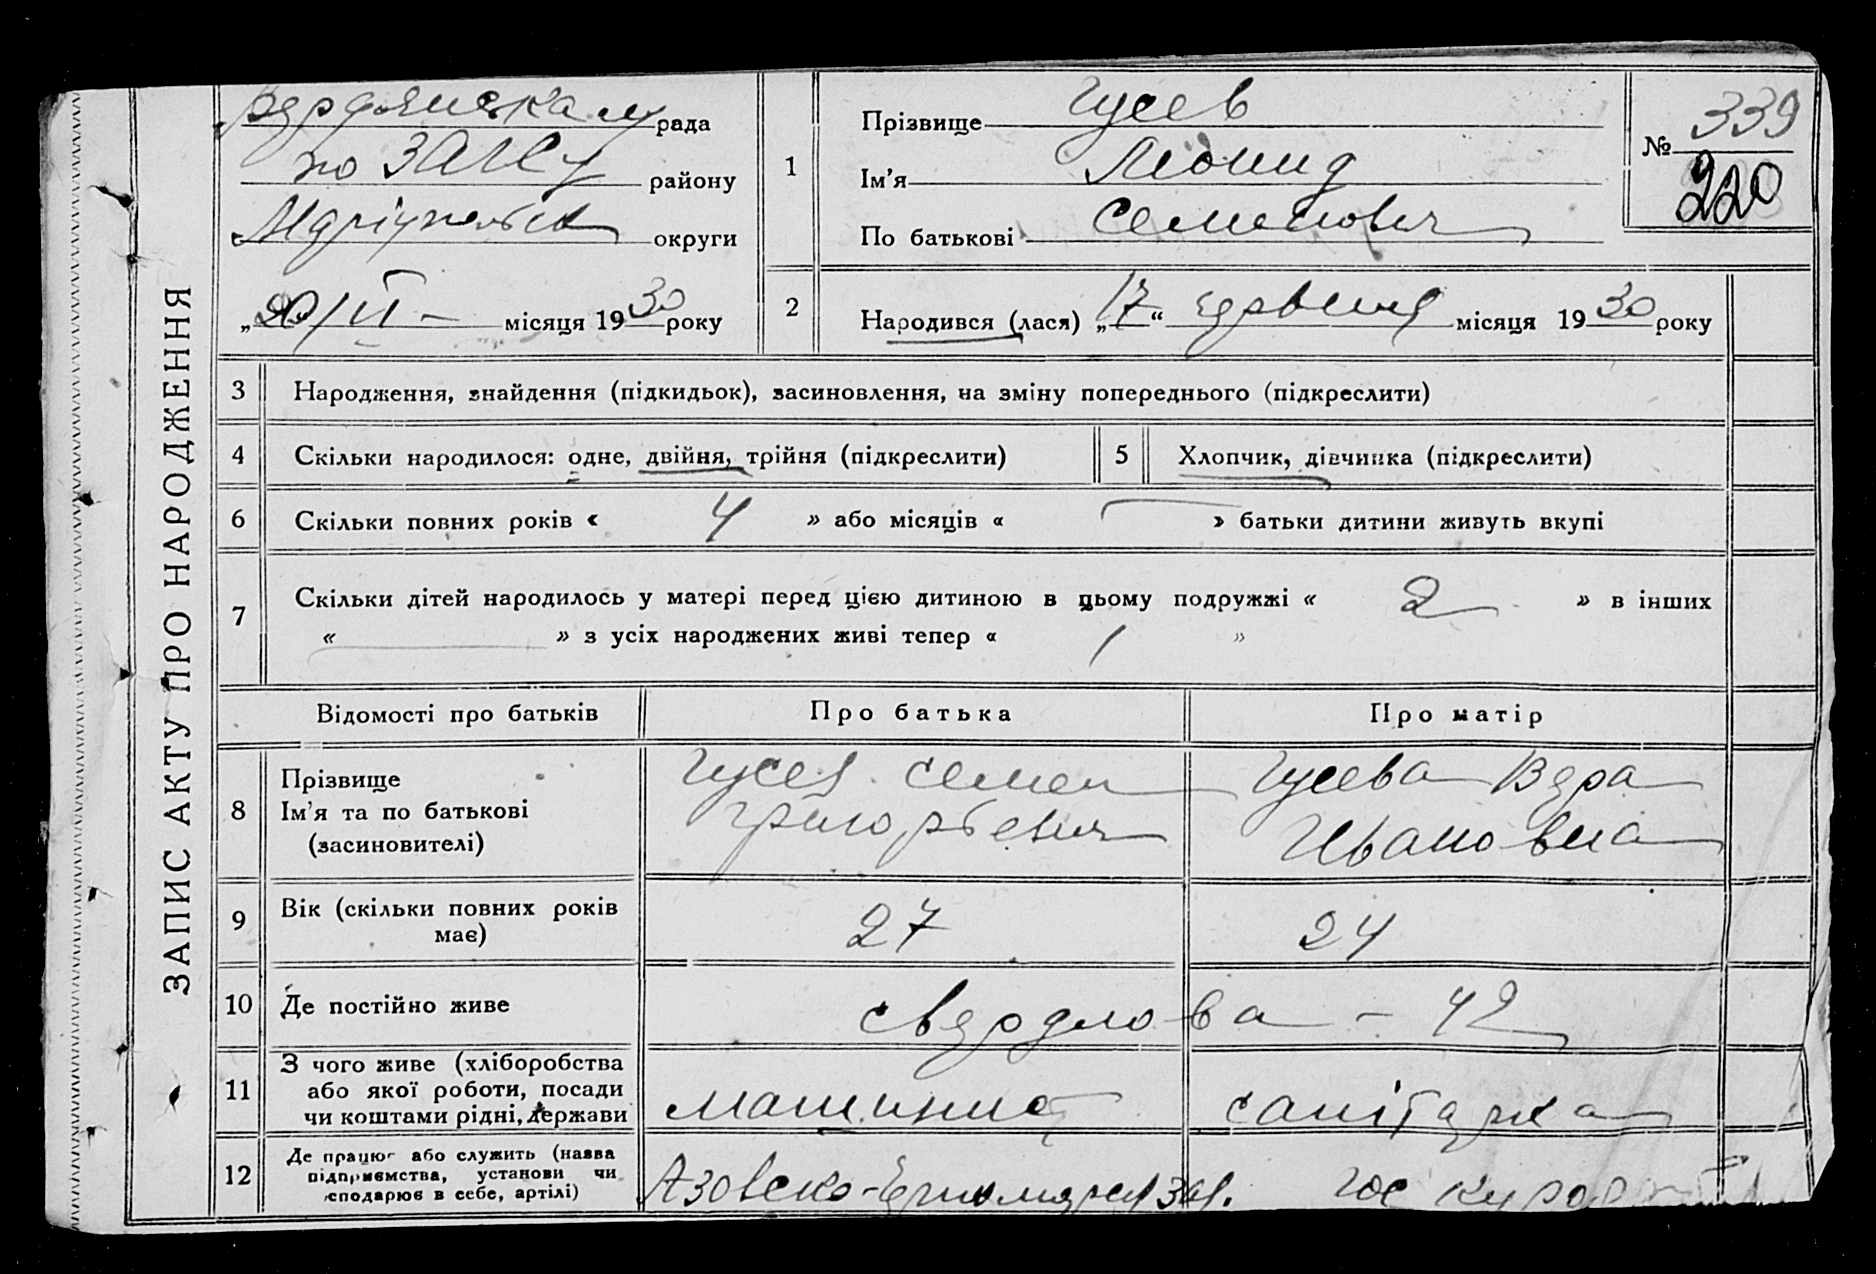 ЗАПИС АКТУ ПРО НАРОДЖЕННЯ
Бердянська м/рада
по ЗАГСу району
Маріупольськ округи
„20/VI - місяця 1930 року
1
Прізвище Гусев
Ім’я Леонид
По батькові Семенович
№ 339
220
2
Народився (лася) „17“ червня місяця 1930 року
3 Народження, знайдення (підкидьок), засиновлення, на зміну попереднього (підкреслити)
4 Скільки народилося: одне, двійня, трійня (підкреслити) 5 Хлопчик, дівчинка (підкреслити)
6 Скільки повних років « 4 » або місяців « » батьки дитини живуть вкупі
7 Скільки дітей народилось у матері перед цією дитиною в цьому подружжі « 2 » в інших
« » з усіх народжених живі тепер « 1 »
Відомості про батьків Про батька Про матір
8 Прізвище
Ім’я та по батькові
(засиновителі)
Гусев Семен
Григорьевич
Гусева Вера
Ивановна
9 Вік (скільки повних років
має)
27 24
10 Де постійно живе Свердлова - 42
11 З чого живе (хліборобства
або якої роботи, посади
чи коштами рідні, держави
машинист санітарка
12 Де працює або служить (назва
підприємства, установи чи
господарює в себе, артілі)
Азовско-Черномор гос курорт